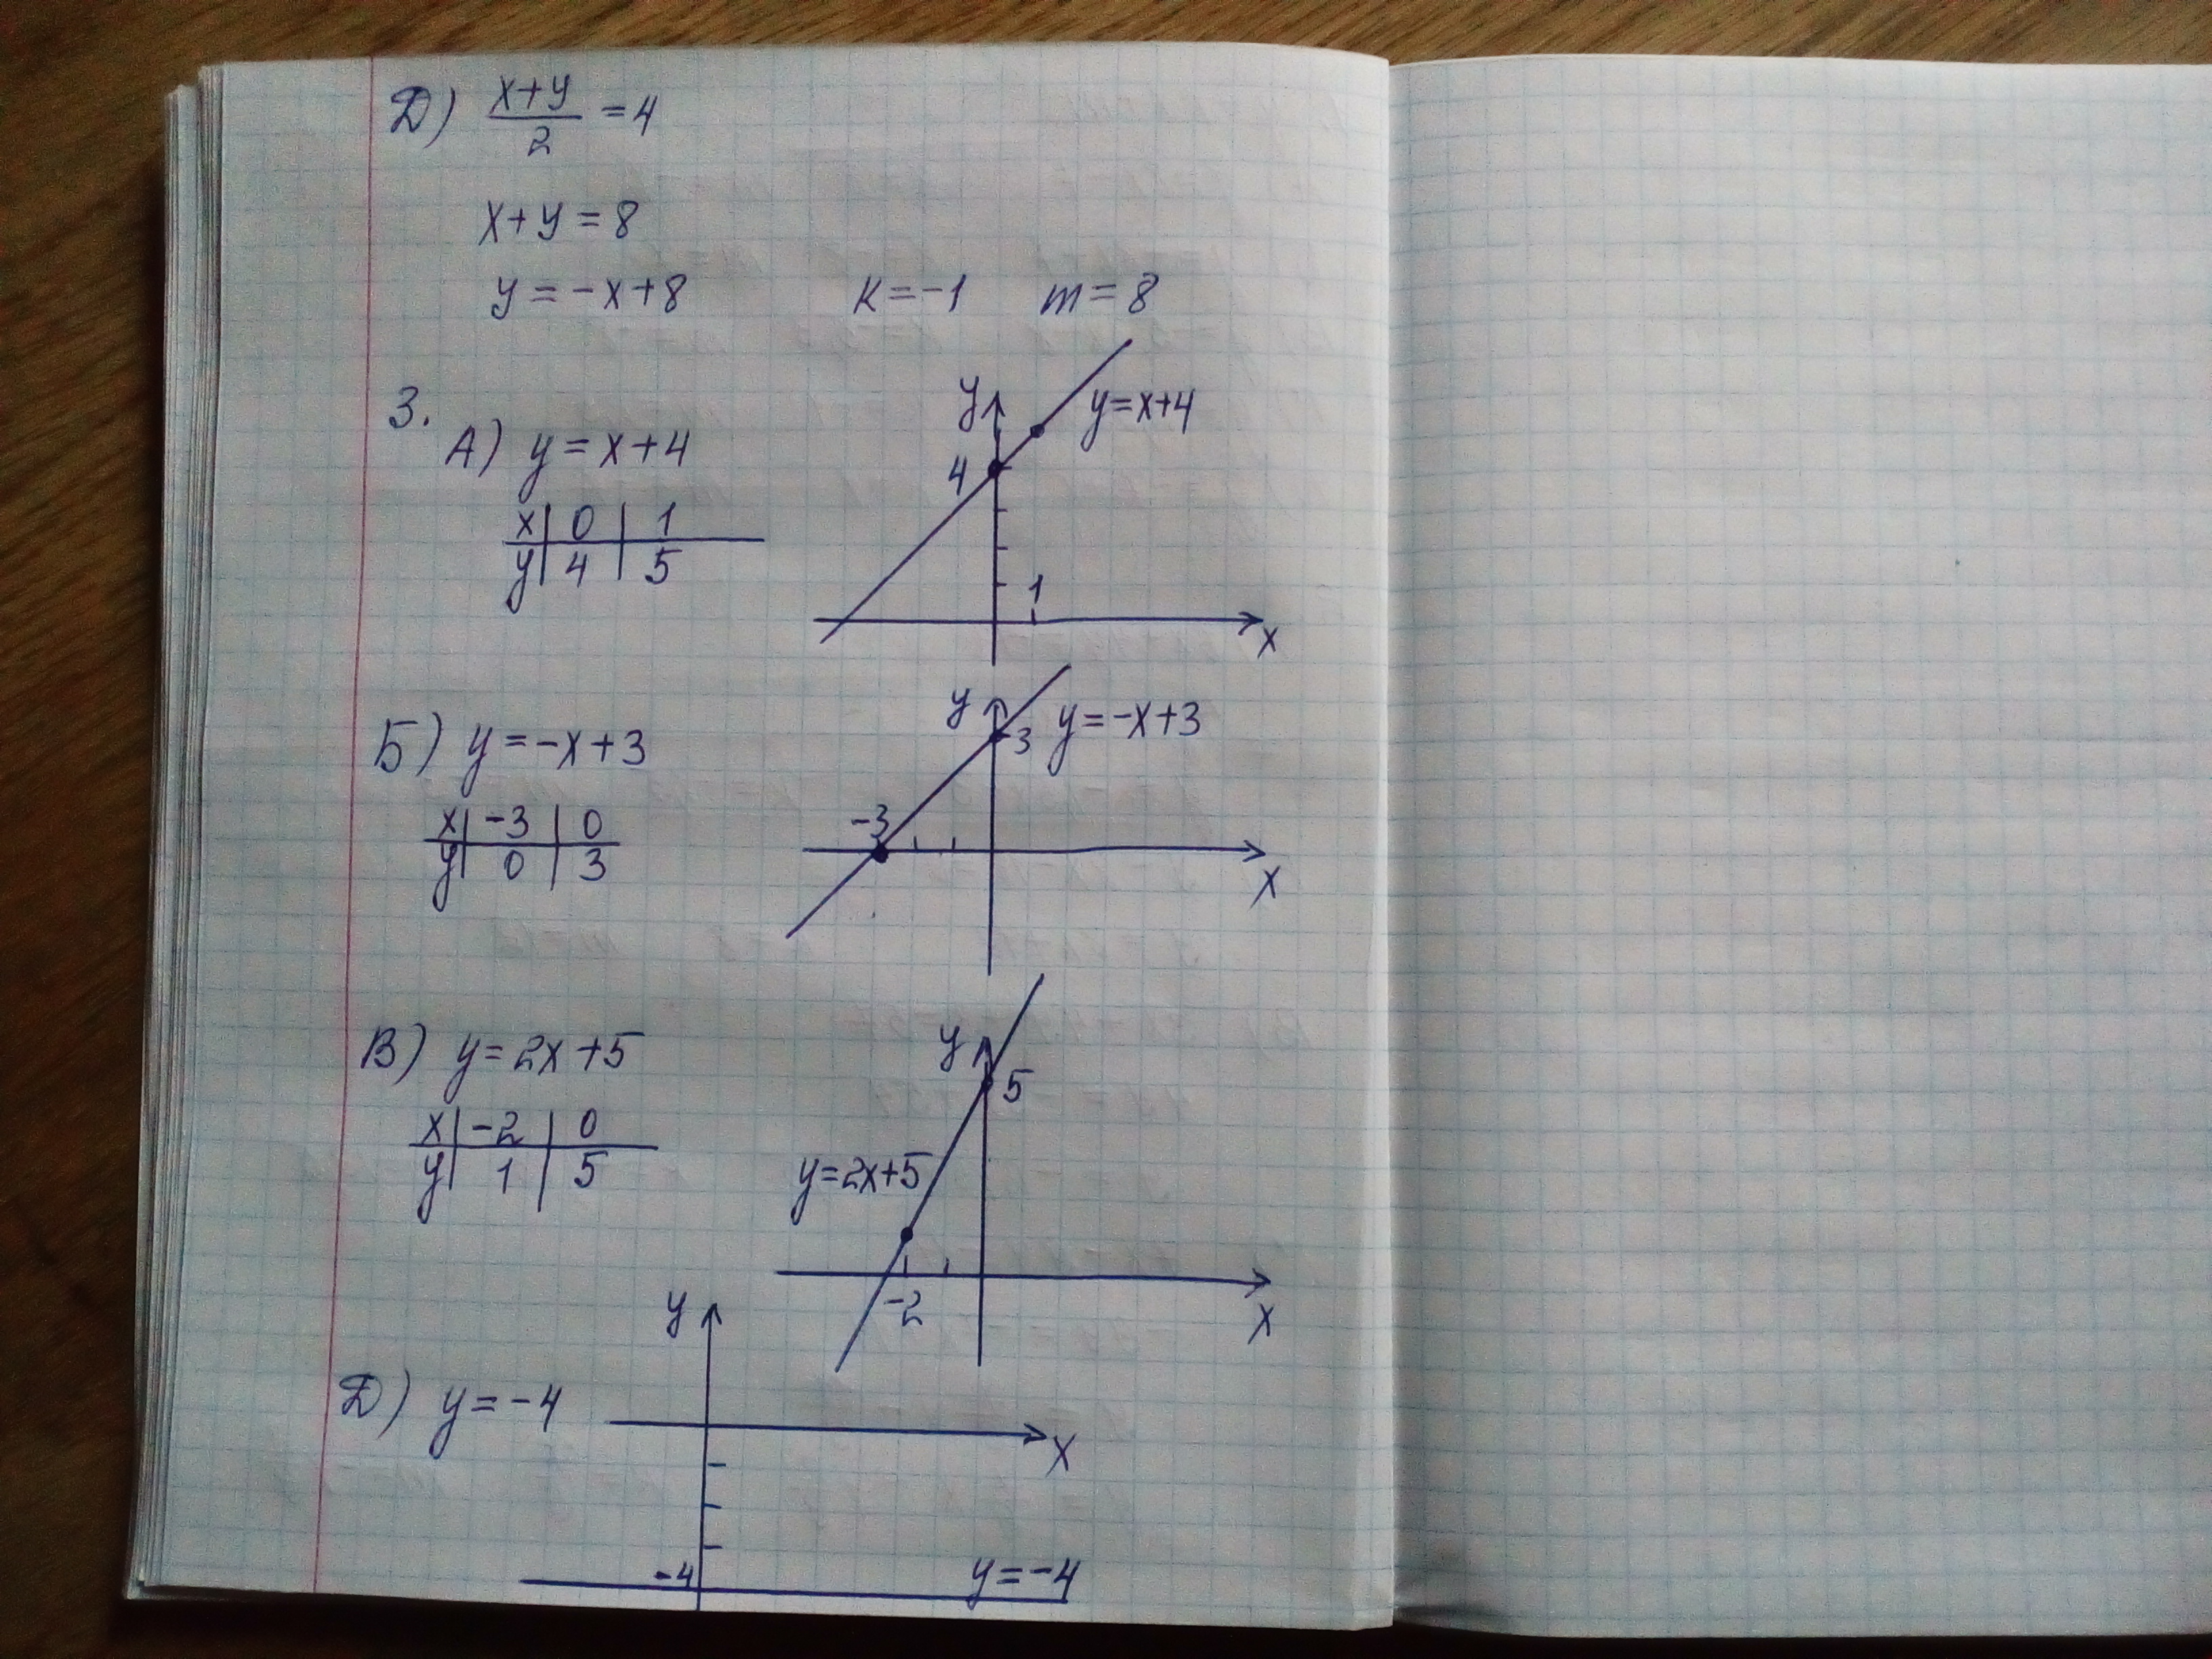 Д) x+y/2 = 4
x+y=8
y=-x+8 k=-1 m=8
3.
А) y=x+4
x | 0 | 1
y | 4 | 5
y
y=x+4
4
1
x
Б) y=-x+3
x | -3 | 0
y | 0 | 3
y
3
y=-x+3
-3
x
В) y=2x+5
x | -2 | 0
y | 1 | 5
y
5
y=2x+5
-2
x
Д) y=-4
y
x
-4
y=-4